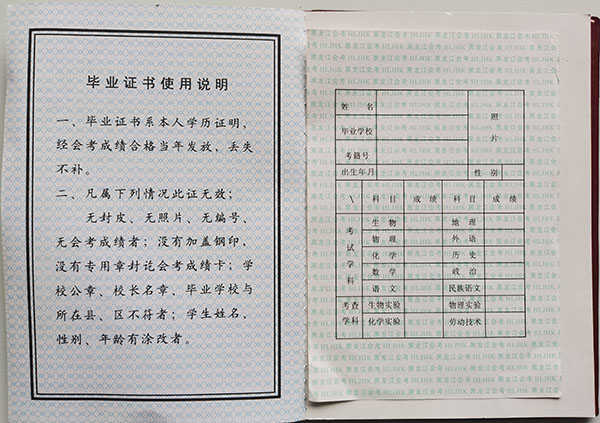 毕业证书使用说明
一、毕业证书系本人学历证明，
经会考成绩合格当年发放，丢失
不补。
二、凡属下列情况此证无效；
无封皮、无照片、无编号、
无会考成绩者；没有加盖钢印，
没有专用章封讫会考成绩卡；学
校公章、校长名章、毕业学校与
所在县、区不符者；学生姓名、
性别、年龄有涂改者。
姓 名
照
片
毕业学校
考籍号
出生年月 性 别
科 目 成 绩 科 目 成 绩
考
试
学
科
生 物 地 理
物 理 外 语
化 学 历 史
数 学 政 治
语 文 民族语文
考查
学科
生物实验 物理实验
化学实验 劳动技术
黑龙江会考 HLJHK